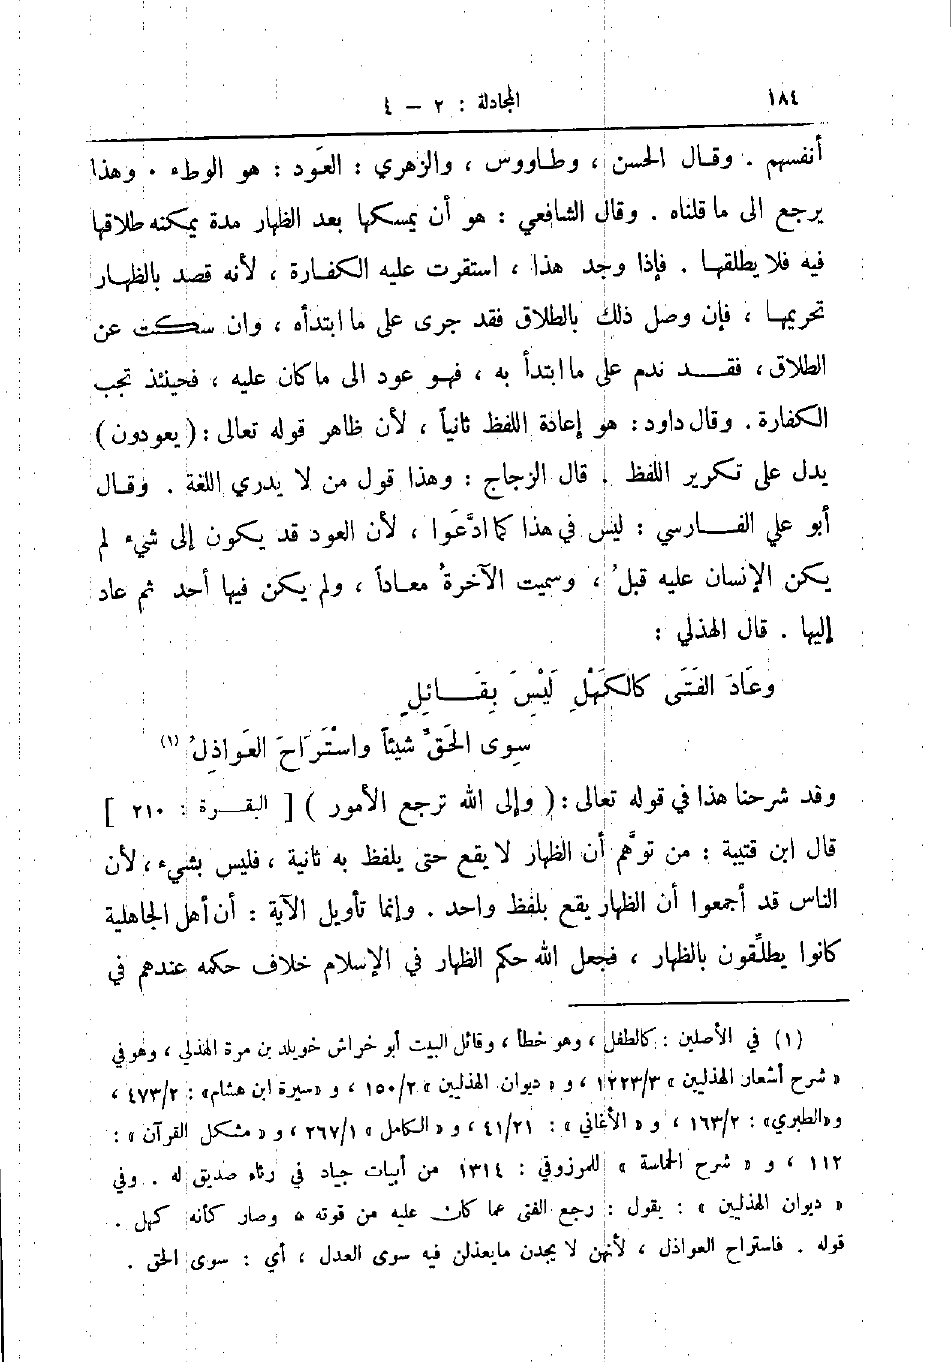 ١٨٤
المجادلة : ٢ – ٤
أنفسهم . وقال الحسن ، وطاووس ، والزهري : العَود : هو الوطء . وهذا
يرجع الى ما قلناه . وقال الشافعي : هو أن يمسكها بعد الظهار مدة يمكنه طلاقها
فيه فلا يطلقها . فإذا وجد هذا ، استقرت عليه الكفارة ، لأنه قصد بالظهار
تحريمها ، فإن وصل ذلك بالطلاق فقد جرى على ما ابتدأه ، وان سكت عن
الطلاق ، فقد ندم على ما ابتدأ به ، فهو عود الى ما كان عليه ، فحينئذ تجب
الكفارة . وقال داود : هو إعادة اللفظ ثانياً ، لأن ظاهر قوله تعالى : ( يعودون )
يدل على تكرير اللفظ . قال الزجاج : وهذا قول من لا يدري اللغة . وقال
أبو علي الفارسي : ليس في هذا كما ادَّعَوا ، لأن العود قد يكون إلى شيء لم
يكن الإنسان عليه قبلُ ، وسميت الآخرةُ معاداً ، ولم يكن فيها أحد ثم عاد
إليها . قال الهذلي :
وعَادَ الفَتَى كالكَهْلِ لَيْسَ بِقَائِلٍ
سِوى الحَقِّ شيئاً واسْتَرَاحَ العَواذِلُ (١)
وقد شرحنا هذا في قوله تعالى : ( وإلى الله ترجع الأمور ) [ البقرة : ٢١٠ ]
قال ابن قتيبة : من توهَّم أن الظهار لا يقع حتى يلفظ به ثانية ، فليس بشيء ، لأن
الناس قد أجمعوا أن الظهار يقع بلفظ واحد . وإنما تأويل الآية : أن أهل الجاهلية
كانوا يطلِّقون بالظهار ، فجعل الله حكم الظهار في الإسلام خلاف حكمه عندهم في
(١) في الأصلين : كالطفل ، وهو خطأ ، وقائل البيت أبو خراش خويلد بن مرة الهذلي ، وهو في
« شرح أشعار الهذليين » ١٢٢٣/٣ ، و « ديوان الهذليين » ١٥٠/٢ ، و «سيرة ابن هشام» : ٤٧٣/٢ ،
و«الطبري» : ١٦٣/٢ ، و « الأغاني » : ٤١/٢١ ، و « الكامل » ٢٦٧/١ ، و « مشكل القرآن » :
١١٢ ، و « شرح الحماسة » للمرزوقي : ١٣١٤ من أبيات جياد في رثاء صديق له . وفي
« ديوان الهذليين » : يقول : رجع الفتى عما كان عليه من قوته ، وصار كأنه كهل .
قوله . فاستراح العواذل ، لأنهن لا يجدن ما يعذلن فيه سوى العدل ، أي : سوى الحق .